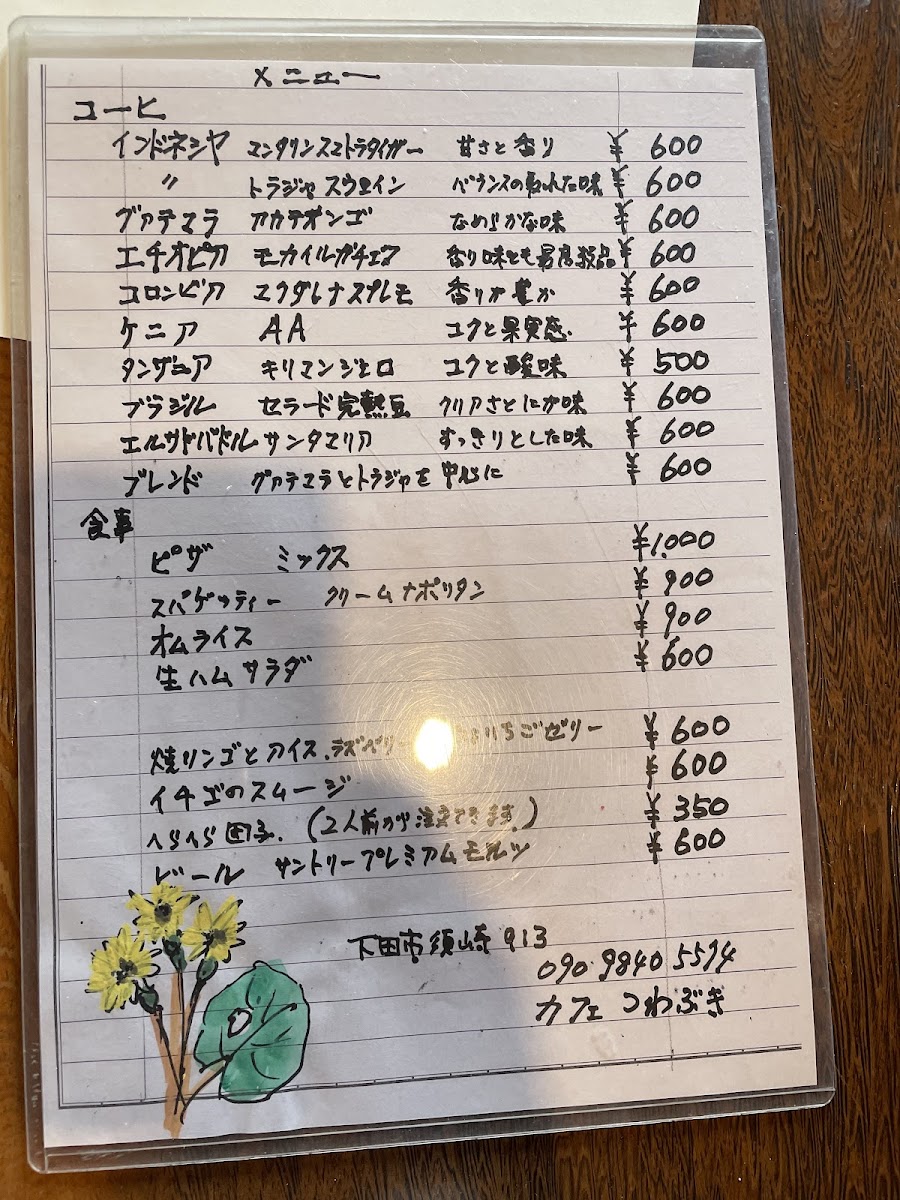 メニュー
コーヒ
インドネシヤ マンダリンスマトラタイガー 甘さと香り ¥600
〃 トラジャスウェイン バランスの取れた味 ¥600
グァテマラ アカテナンゴ なめらかな味 ¥600
エチオピア モカイルガチェフ 香り味とも最高級品 ¥600
コロンビア スプレモ 香りが豊か ¥600
ケニア AA コクと果実感. ¥600
タンザニア キリマンジェロ コクと酸味 ¥500
ブラジル セラード完熟豆 クリアさとにが味 ¥600
エルサドバドル サンタマリア すっきりとした味 ¥600
ブレンド グァテマラとトラジャを中心に ¥600
食事
ピザ ミックス ¥1.000
スパゲッティー クリームナポリタン ¥900
オムライス ¥900
生ハムサラダ ¥600
焼リンゴとアイス、ラズベリー いちごゼリー ¥600
イチゴのスムージ ¥600
へらへら団子. (2人前から注文できます.) ¥350
ビール サントリープレミアムモルツ ¥600
下田市須崎913
090 9840 5594
カフェ つわぶき